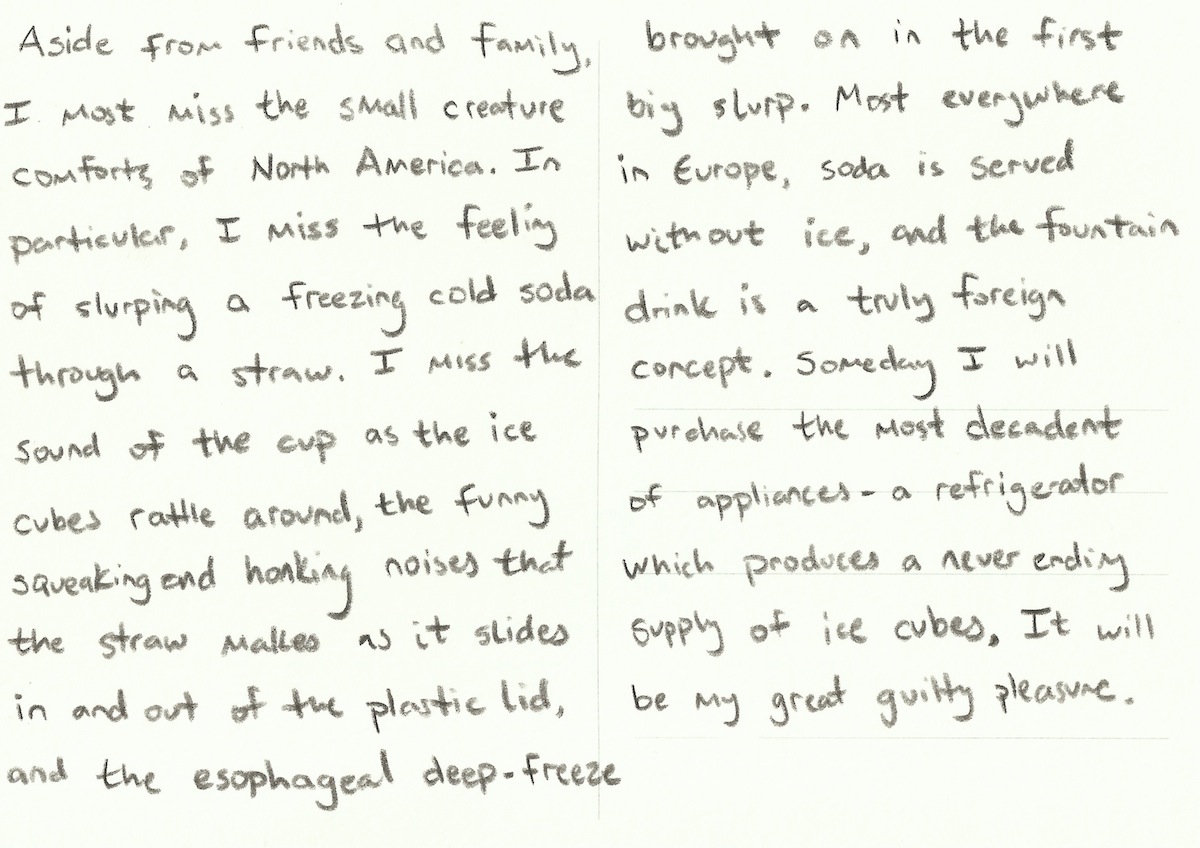 Aside from friends and family,
I most miss the small creature
comforts of North America. In
particular, I miss the feeling
of slurping a freezing cold soda
through a straw. I miss the
sound of the cup as the ice
cubes rattle around, the funny
squeaking and honking noises that
the straw makes as it slides
in and out of the plastic lid,
and the esophageal deep-freeze
brought on in the first
big slurp. Most everywhere
in Europe, soda is served
without ice, and the fountain
drink is a truly foreign
concept. Someday I will
purchase the most decadent
of appliances - a refrigerator
which produces a never ending
supply of ice cubes, It will
be my great guilty pleasure.